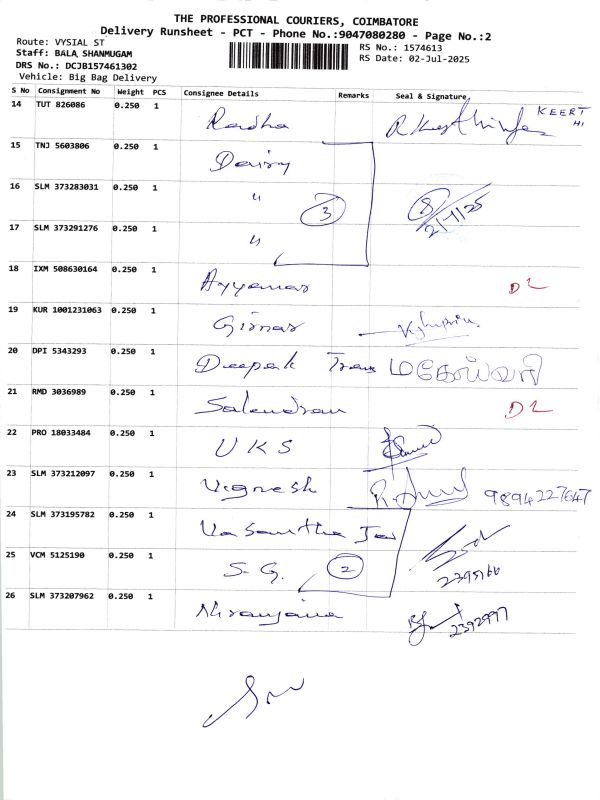 THE PROFESSIONAL COURIERS, COIMBATORE
Delivery Runsheet - PCT - Phone No.:9047080280 - Page No.:2
Route: VYSIAL ST
Staff: BALA, SHANMUGAM
DRS No.: DCJB157461302
Vehicle: Big Bag Delivery
RS No.: 1574613
RS Date: 02-Jul-2025
S No Consignment No Weight PCS Consignee Details Remarks Seal & Signature
14 TUT 826086 0.250 1 Radha KEERTHI
15 TNJ 5603806 0.250 1 Dairy
16 SLM 373283031 0.250 1 " 3 8
17 SLM 373291276 0.250 1 "
18 IXM 508630164 0.250 1 Ayyanar D2
19 KUR 1001231063 0.250 1 Girnar
20 DPI 5343293 0.250 1 Deepak Trans மகேஸ்வரி
21 RMD 3036989 0.250 1 Salendran D2
22 PRO 18033484 0.250 1 UKS
23 SLM 373212097 0.250 1 Vignesh 9894227647
24 SLM 373195782 0.250 1 Vasantha
25 VCM 5125190 0.250 1 S.G. 2
26 SLM 373207962 0.250 1 Niranjana 2392997